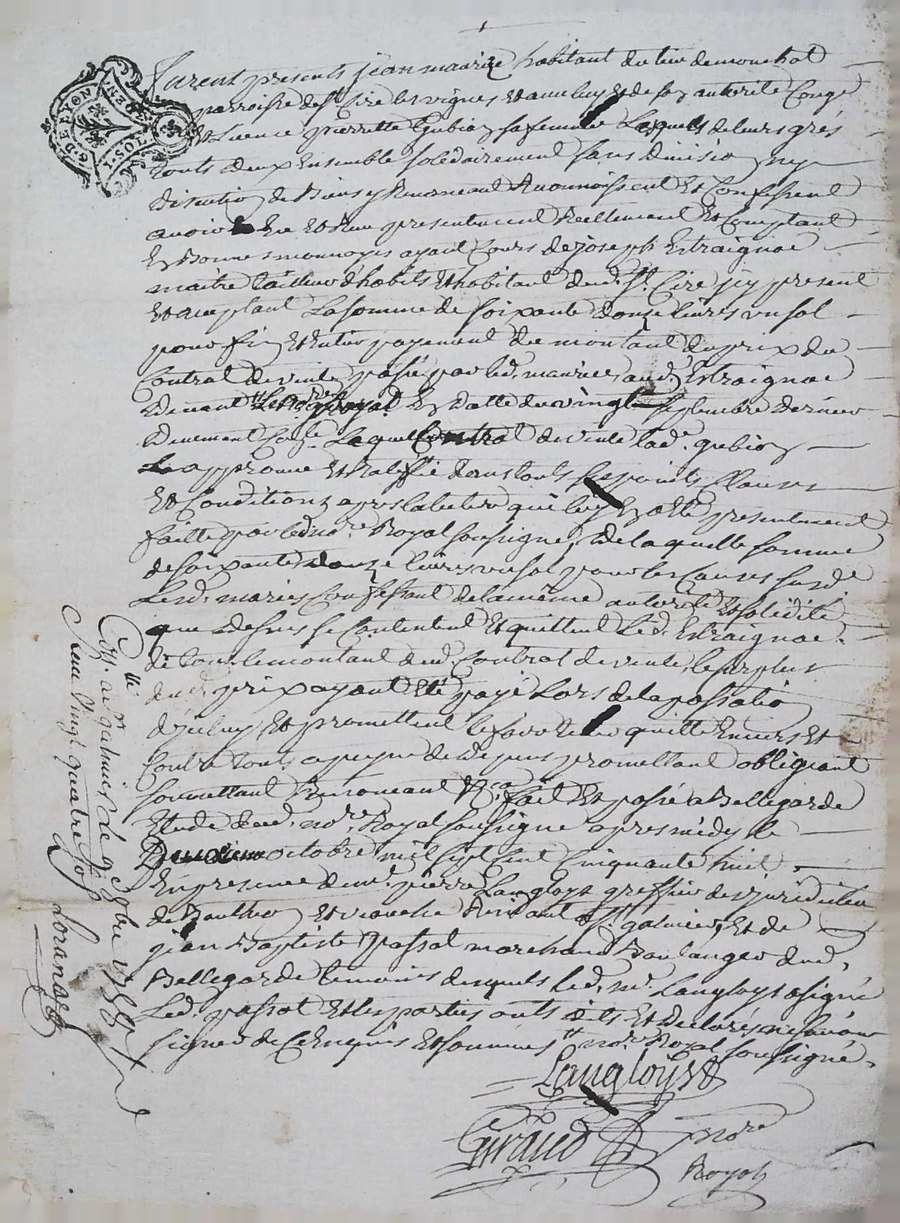 G. D. LYON
GEN
2 SOLS
furent presents jean maurize habitant du lieu de monchal
parroisse de St. Cire les vignes Et avec luy Et de son autorité Congé
Et Licence pierrette Gubian sa femme Lesquels de leurs grés
touts deux Ensemble solidairement sans division ny
discution de biens y Renonceant Reconnoissent Et Confessent
avoir Eu Et Reçu presentement Reellement Et Comptant
En bonnes monnoyes ayant Cours de joseph Extraignac
maitre tailleur d'habits Et habitant dud. St. Cire jcy present
Et acceptant La somme de soixante douze livres un sol
pour fin Et Entier payement du montant du prix du
Contrat de vente passé par led. maurize aud. Extraignac
devant Le nore Royal En datte du vingt septembre dernier
duement Lequel Contrat de vente lad. gubian
La approuvé Et Ratiffié dans touts ses points Clauses
Et Conditions apres la lecture qui luy En a Eté presentement
faitte par led. nore. Royal soussigné, de la quelle somme
de soixante douze livres un sol pour les Causes susd.
Les d. mariés Confessant de la même autorité Et solidité
que dessus se Contentent Et quittent led. Extraignac
de tout le montant dud. Contrat de vente, le surplus
dud. prix ayant Eté payé Lors de la passation
d'iceluy, Et promettent le faire tenir quitte Envers Et
Contre touts a peyne de depens promettant obligeant
soumettant Renonceant &ca. fait Et passé a Bellegarde
Etude dud. nore. Royal soussigné apres midy le
octobre mil sept cent cinquante huit.
En presence de mr. pierre Langloys greffier des juridictions
de Et Residant a St. galmier, Et de
jean Baptiste passal marchand Boulanger dud.
Bellegarde temoins desquels led. mr. Langloys a signé
Led. passal Et les parties onts dits Et declarés ne savoir
signer de Ce Enquis Et sommés nore. Royal soussigné.
Langloys
Giraud nore
Royal
Coll. a St. galmier le 9bre 1758
Reçu vingt quatre sols
Lorand